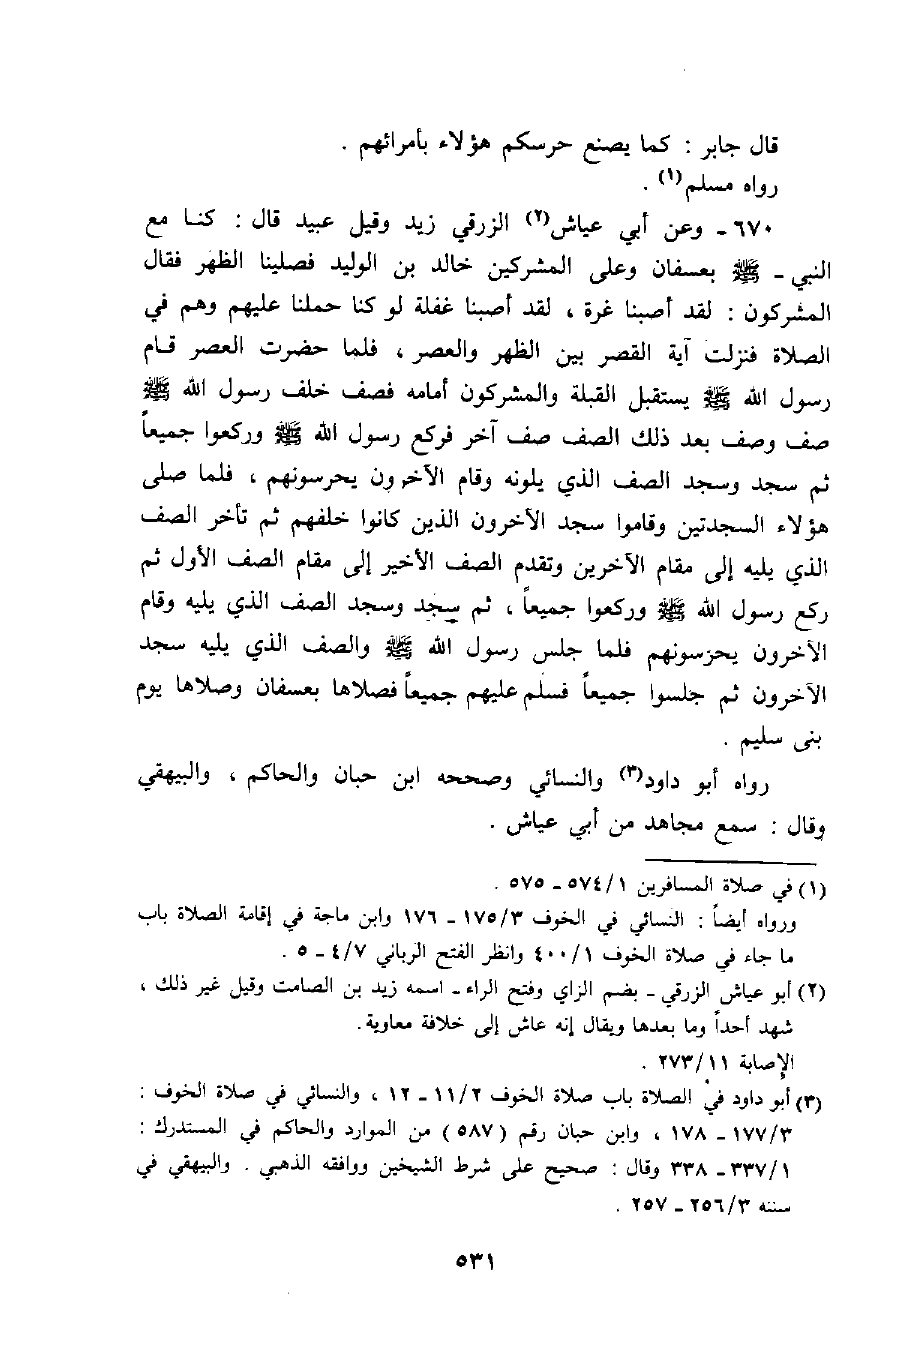 قال جابر : كما يصنع حرسكم هؤلاء بأمرائهم .
رواه مسلم(١) .
٦٧٠ - وعن أبي عياش(٢) الزرقي زيد وقيل عبيد قال : كنا مع
النبي - ﷺ بعسفان وعلى المشركين خالد بن الوليد فصلينا الظهر فقال
المشركون : لقد أصبنا غرة ، لقد أصبنا غفلة لو كنا حملنا عليهم وهم في
الصلاة فنزلت آية القصر بين الظهر والعصر ، فلما حضرت العصر قام
رسول الله ﷺ يستقبل القبلة والمشركون أمامه فصف خلف رسول الله ﷺ
صف وصف بعد ذلك الصف صف آخر فركع رسول الله ﷺ وركعوا جميعاً
ثم سجد وسجد الصف الذي يلونه وقام الآخرون يحرسونهم ، فلما صلى
هؤلاء السجدتين وقاموا سجد الآخرون الذين كانوا خلفهم ثم تأخر الصف
الذي يليه إلى مقام الآخرين وتقدم الصف الأخير إلى مقام الصف الأول ثم
ركع رسول الله ﷺ وركعوا جميعاً ، ثم سجد وسجد الصف الذي يليه وقام
الآخرون يحرسونهم فلما جلس رسول الله ﷺ والصف الذي يليه سجد
الآخرون ثم جلسوا جميعاً فسلم عليهم جميعاً فصلاها بعسفان وصلاها يوم
بنى سليم .
رواه أبو داود(٣) والنسائي وصححه ابن حبان والحاكم ، والبيهقي
وقال : سمع مجاهد من أبي عياش .
(١) في صلاة المسافرين ٥٧٤/١ - ٥٧٥ .
ورواه أيضاً : النسائي في الخوف ١٧٥/٣ - ١٧٦ وابن ماجة في إقامة الصلاة باب
ما جاء في صلاة الخوف ٤٠٠/١ وانظر الفتح الرباني ٤/٧ - ٥ .
(٢) أبو عياش الزرقي - بضم الزاي وفتح الراء - اسمه زيد بن الصامت وقيل غير ذلك ،
شهد أحداً وما بعدها ويقال إنه عاش إلى خلافة معاوية .
الإصابة ٢٧٣/١١ .
(٣) أبو داود في الصلاة باب صلاة الخوف ١١/٢ - ١٢ ، والنسائي في صلاة الخوف :
١٧٧/٣ - ١٧٨ ، وابن حبان رقم (٥٨٧) من الموارد والحاكم في المستدرك :
٣٣٧/١ - ٣٣٨ وقال : صحيح على شرط الشيخين ووافقه الذهبي . والبيهقي في
سننه ٢٥٦/٣ - ٢٥٧ .
٥٣١